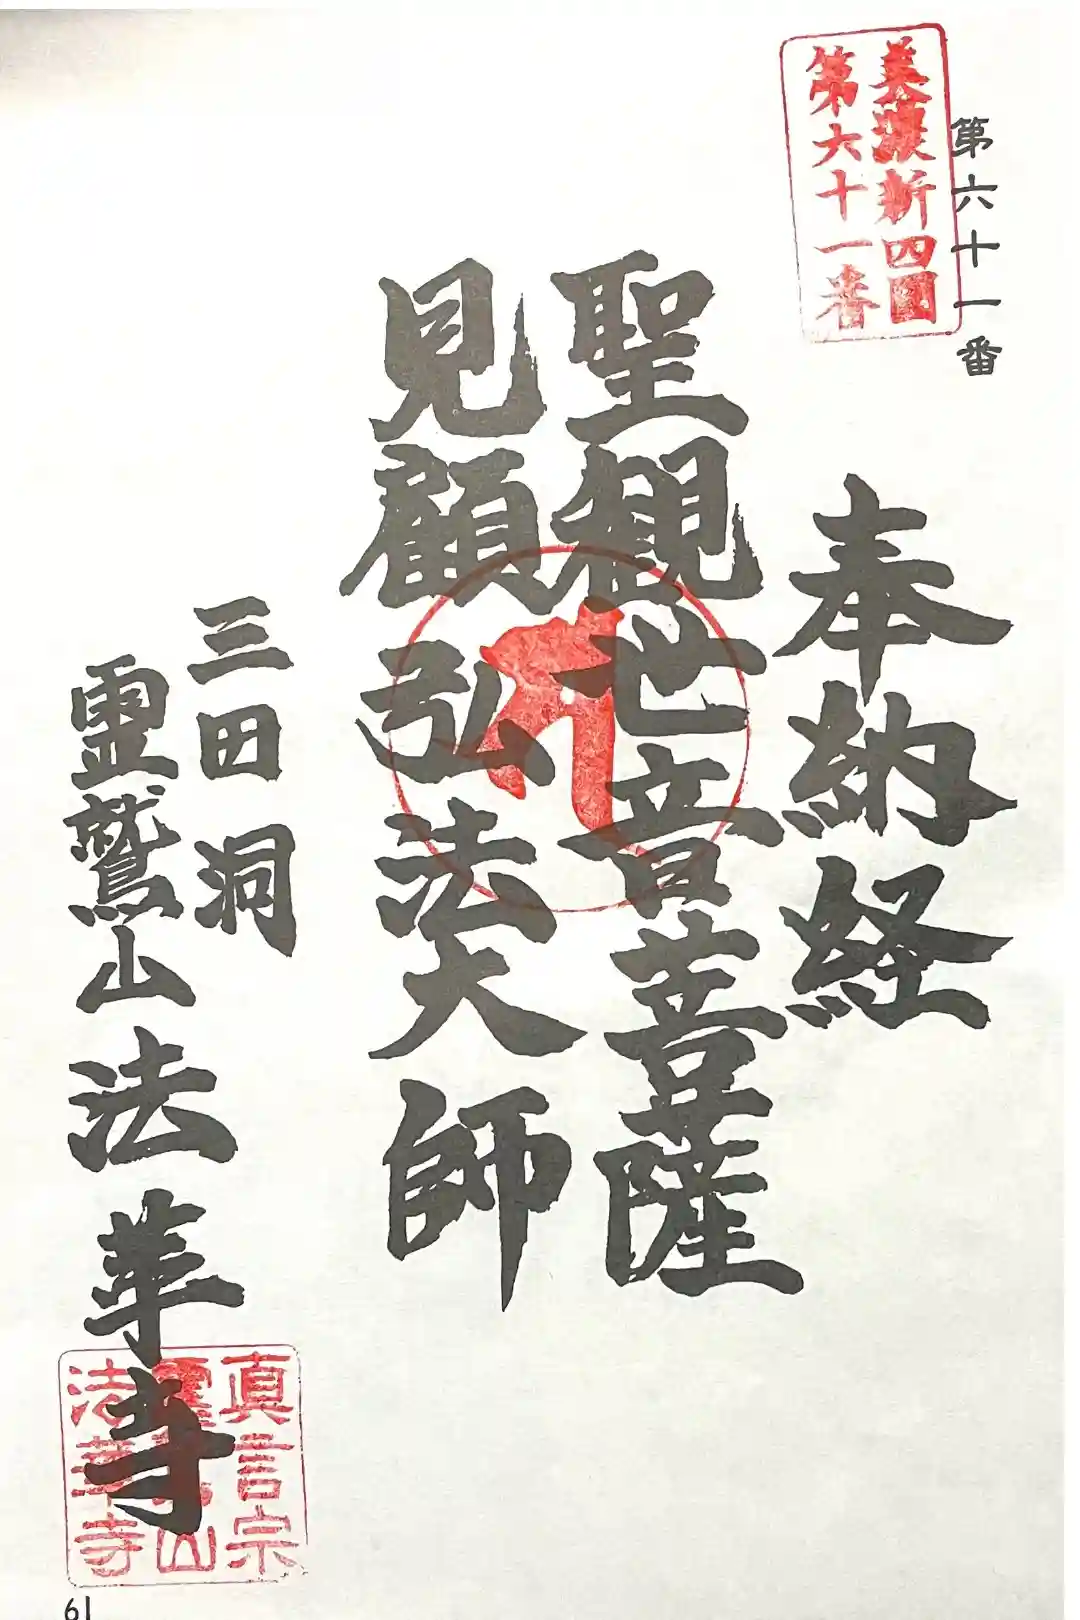 第六十一番
美濃新四國
第六十一番
奉納経
聖観世音菩薩
見顧弘法大師
三田洞
霊鷲山法華寺
真言宗
山
法華寺
61